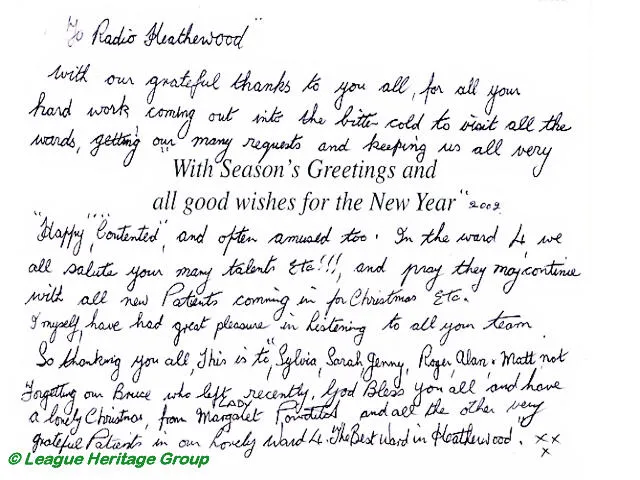 "To Radio Heatherwood"
with our grateful thanks to you all, for all your
hard work coming out into the bitter cold to visit all the
wards, getting our many requests and keeping us all very
With Season's Greetings and
all good wishes for the New Year" 2002
"Happy", "Contented", and often amused too. In the ward 4 we
all salute your many talents Etc!!!, and pray they may continue
with all new Patients coming in for Christmas Etc.
I myself, have had great pleasure in listening to all your team
So thanking you all, This is to "Sylvia, Sarah, Jenny, Roger, Alan. Matt not
Forgetting our Bruce who left recently, God Bless you all and have
a lovely Christmas, from LADY Margaret and all the other very
grateful Patients in our lovely Ward 4. "The Best Ward in Heatherwood". x x
x
© League Heritage Group